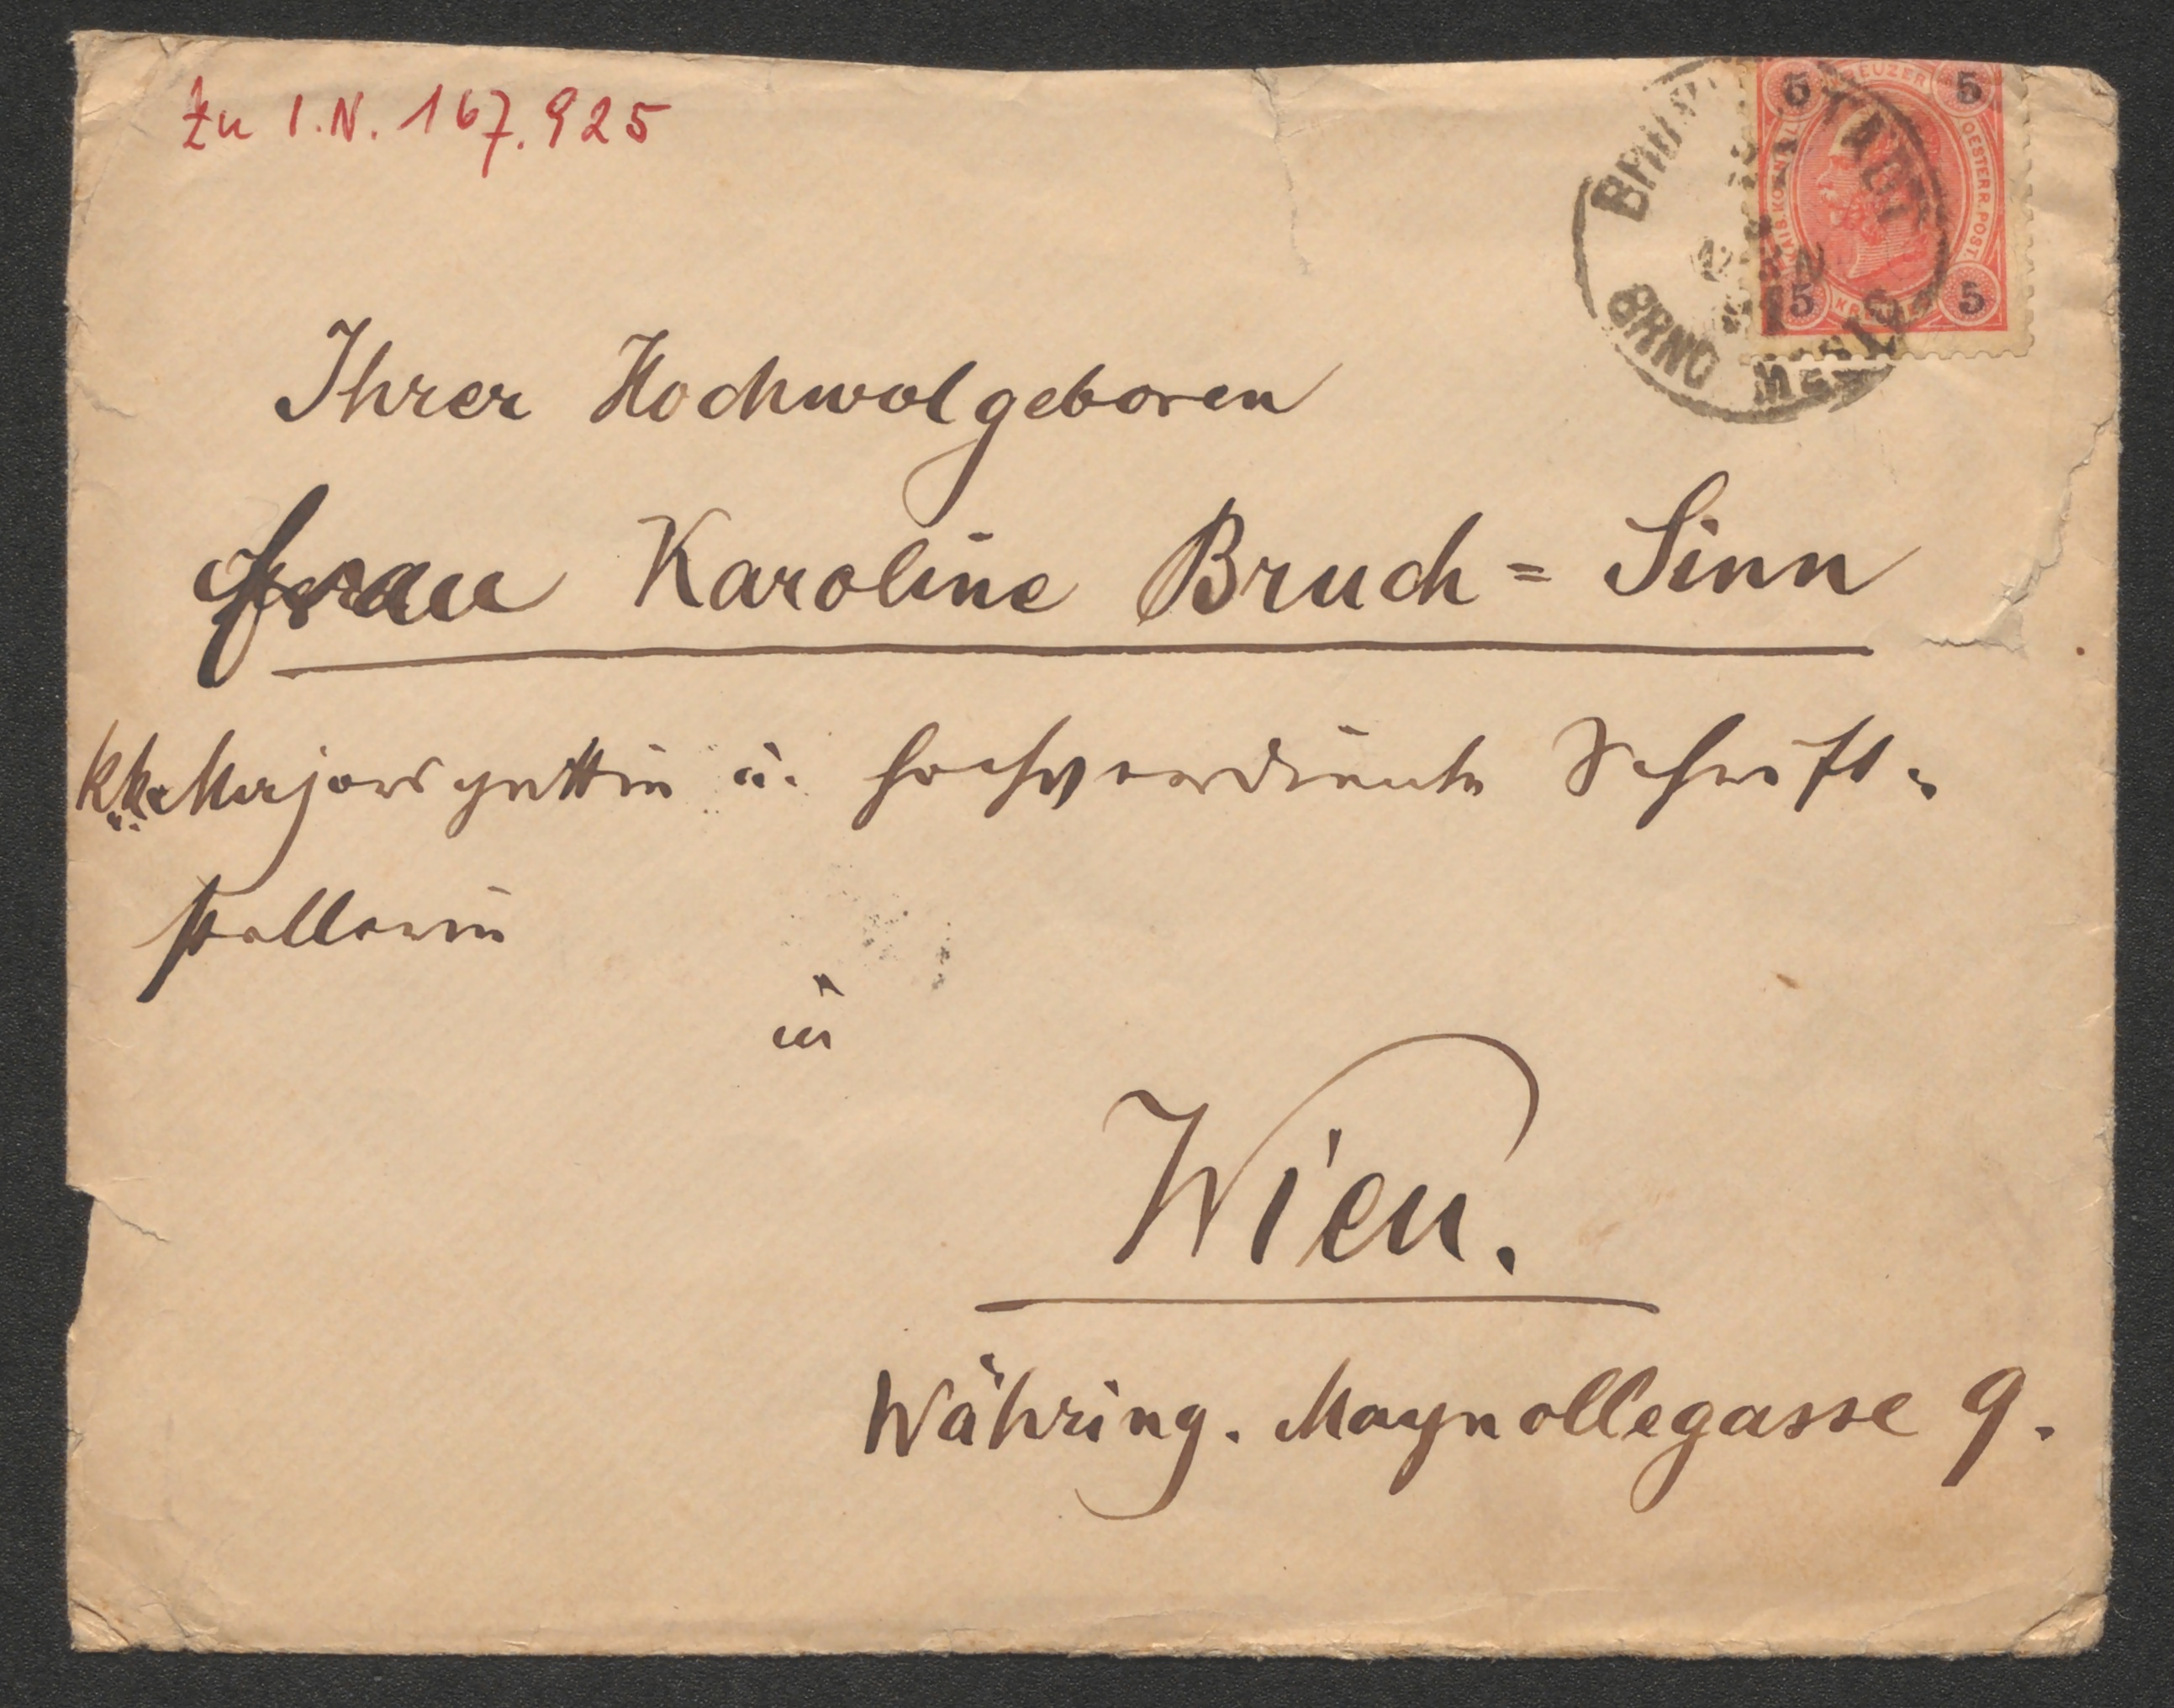 Zu I.N. 167.925
5 KREUZER 5
KAIS. KÖNIGL. OESTERR. POST.
5 5
BRÜNN STADT
BRNO MĚSTO
Ihrer Hochwolgeboren
Frau Karoline Bruch = Sinn
k.k. Majorsgattin u. hochverdiente Schrift-
stellerin
in
Wien.
Währing. Maynollegasse 9.